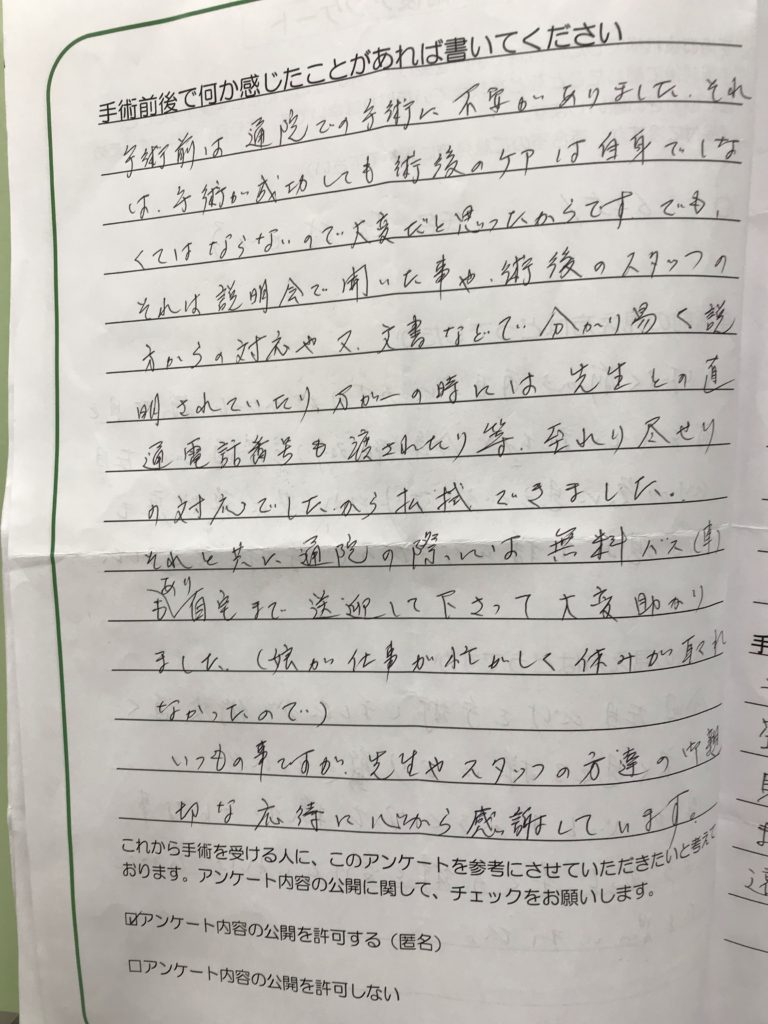 手術前後で何か感じたことがあれば書いてください
手術前は通院での手術に不安がありました。それ
は、手術が成功しても術後のケアは自身でしな
くてはならないので大変だと思ったからです。でも、
それは説明会で聞いた事や、術後のスタッフの
方からの対応や又、文書などで分かり易く説
明されていたり、万が一の時には先生との直
通電話番号も渡されたり等、至れり尽せり
の対応でしたから払拭できました。
それと共に通院の際には無料バス(車)
あり
も自宅まで送迎して下さって大変助かり
ました。(娘が仕事が忙がしく休みが取れ
なかったので)
いつもの事ですが、先生やスタッフの方達の御親
切な応待に心から感謝しています。
これから手術を受ける人に、このアンケートを参考にさせていただきたいと考えて
おります。アンケート内容の公開に関して、チェックをお願いします。
☑アンケート内容の公開を許可する(匿名)
□アンケート内容の公開を許可しない